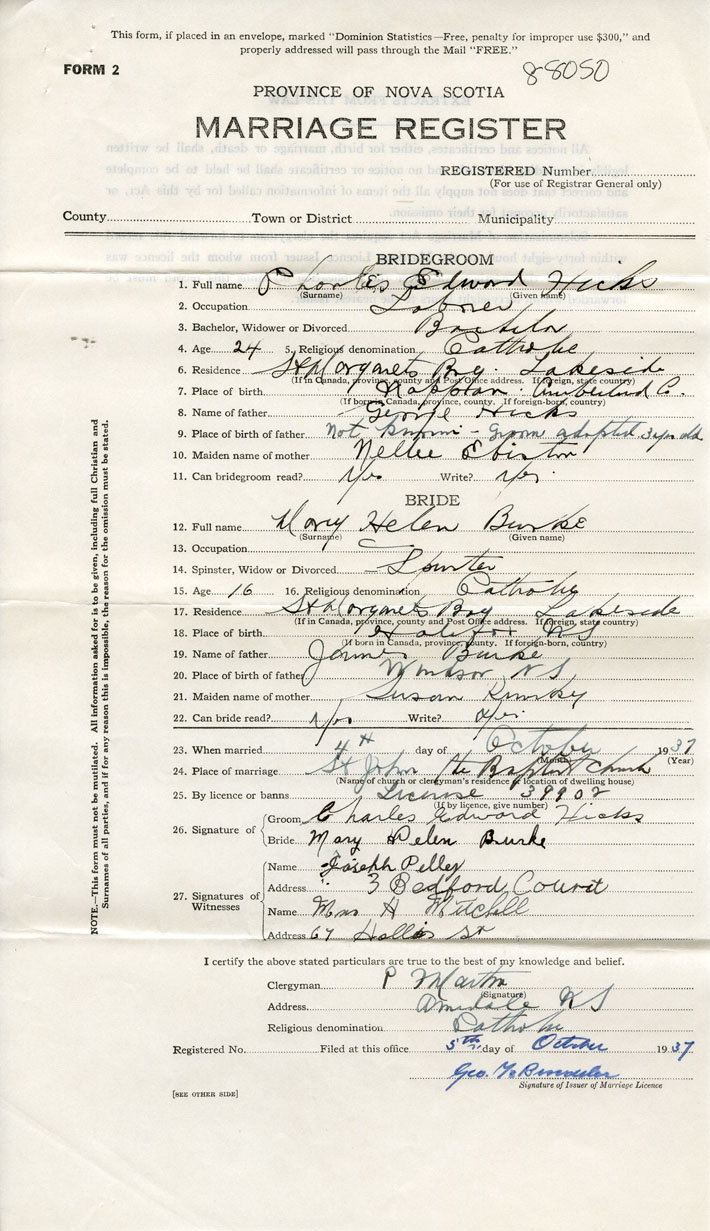 This form, if placed in an envelope, marked "Dominion Statistics—Free, penalty for improper use $300," and
properly addressed will pass through the Mail "FREE."
FORM 2
88050
PROVINCE OF NOVA SCOTIA
MARRIAGE REGISTER
REGISTERED Number
(For use of Registrar General only)
County Town or District Municipality
BRIDEGROOM
1. Full name Charles Edward Hicks
(Surname) (Given name)
2. Occupation Laborer
3. Bachelor, Widower or Divorced Bachelor
4. Age 24 5. Religious denomination Catholic
6. Residence St Margarets Bay. Lakeside
(If in Canada, province, county and Post Office address. If foreign, state country)
7. Place of birth Nappan Cumberland Co.
(If born in Canada, province, county. If foreign-born, country)
8. Name of father George Hicks
9. Place of birth of father Not known - Groom adopted 3 yrs old
10. Maiden name of mother Nellie
11. Can bridegroom read? Yes Write? Yes
BRIDE
12. Full name Mary Helen Burke
(Surname) (Given name)
13. Occupation
14. Spinster, Widow or Divorced Spinster
15. Age 16 16. Religious denomination Catholic
17. Residence St Margarets Bay Lakeside
(If in Canada, province, county and Post Office address. If foreign, state country)
18. Place of birth Halifax NS
(If born in Canada, province, county. If foreign-born, country)
19. Name of father James Burke
20. Place of birth of father Windsor NS
21. Maiden name of mother Susan
22. Can bride read? Yes Write? Yes
23. When married 4th day of October 1937
(Month) (Year)
24. Place of marriage St John the Baptist Church
(Name of church or clergyman's residence or location of dwelling house)
25. By licence or banns License 39902
(If by licence, give number)
26. Signature of Groom Charles Edward Hicks
Bride Mary Helen Burke
27. Signatures of Witnesses
Name Joseph Pelley
Address 3 Bedford Court
Name Mrs H Mitchell
Address 67 Hollis St
I certify the above stated particulars are true to the best of my knowledge and belief.
Clergyman P Martin
(Signature)
Address Armdale NS
Religious denomination Catholic
Registered No. Filed at this office 5th day of October 1937
Geo.
Signature of Issuer of Marriage Licence
[SEE OTHER SIDE]
NOTE.—This form must not be mutilated. All information asked for is to be given, including full Christian and
Surnames of all parties, and if for any reason this is impossible, the reason for the omission must be stated.